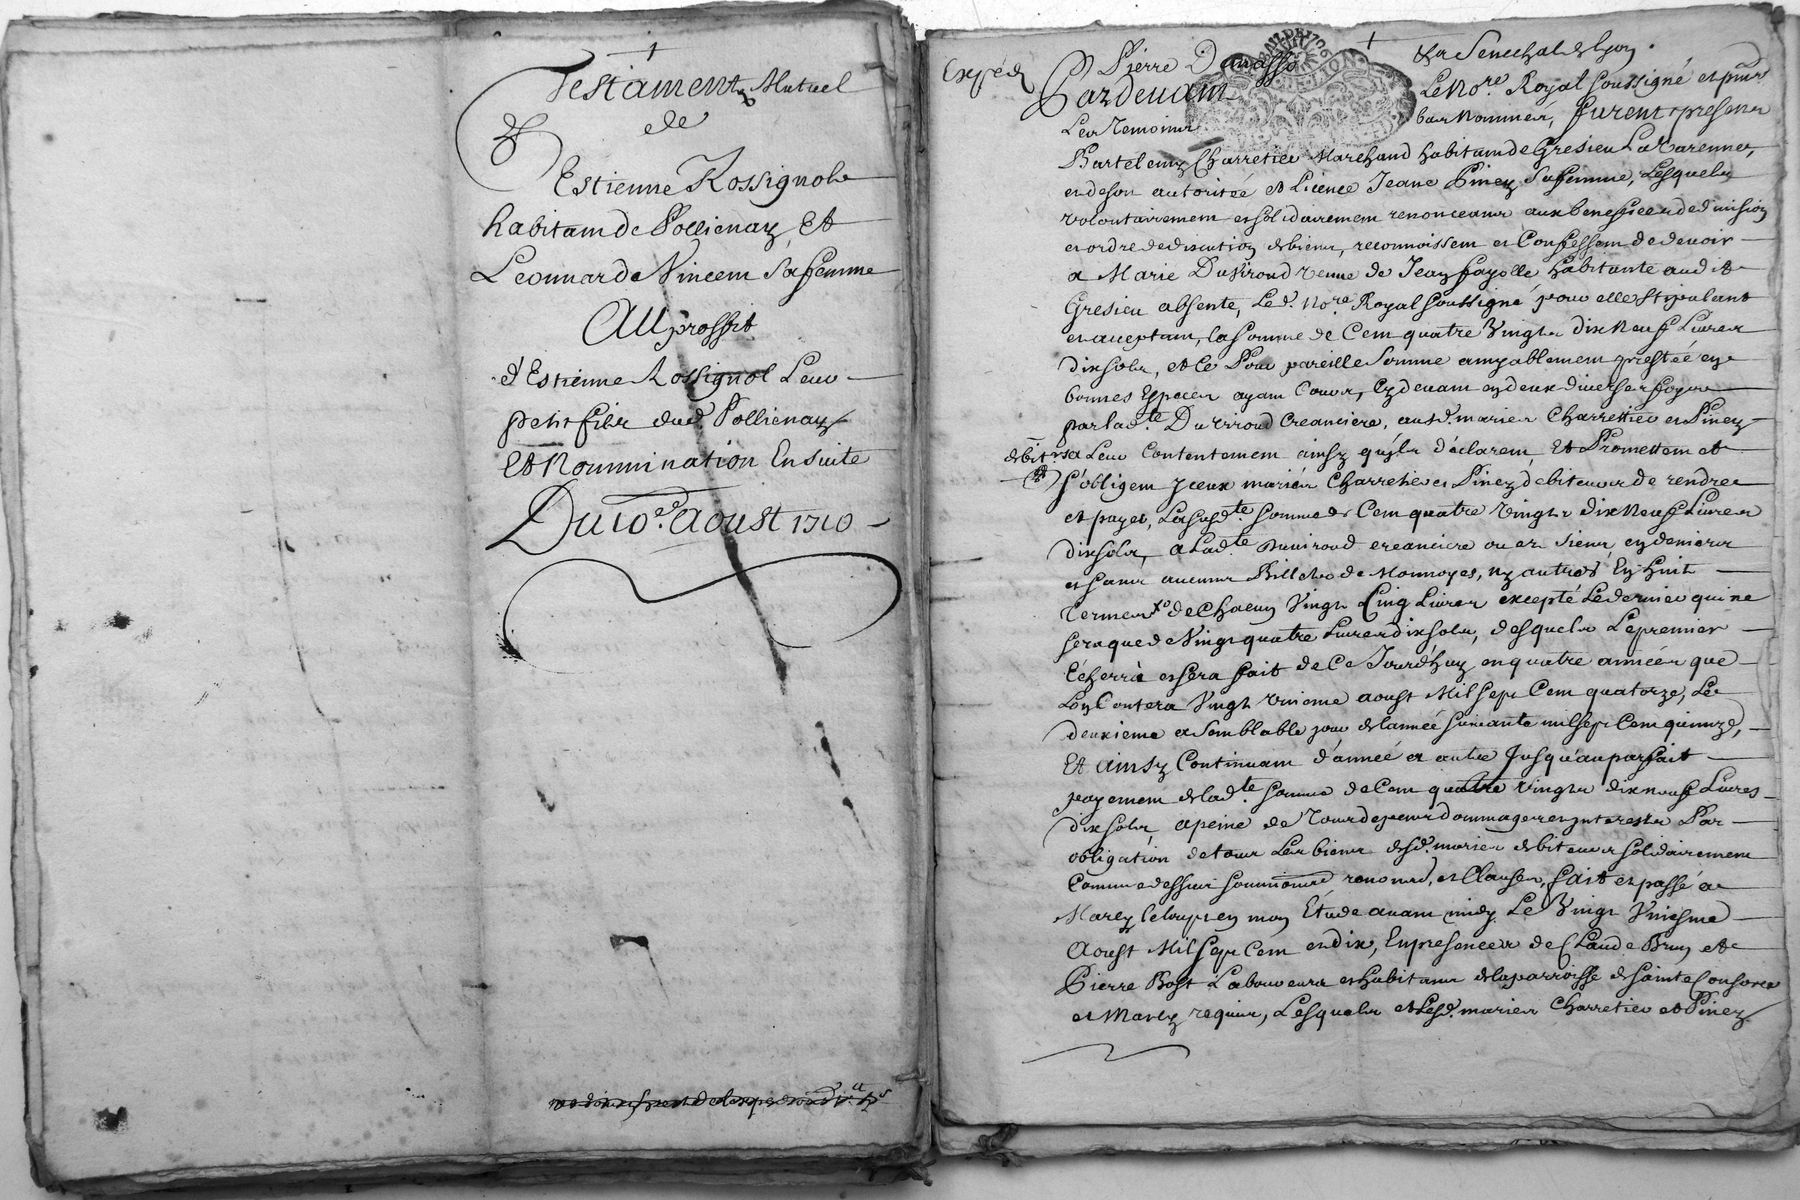 Testament Mutuel
de
Estienne Rossignol
habitant de Pollienay, Et
Leonnarde Vincent Sa femme
Au proffit
d'Estienne Rossignol Leur
petit fils dud. Pollienay
Et Nommination Ensuite
Du 10e. Aoust 1710
Expéd
Pierre
& la Senechal de Lyon.
Pardevant
Le Nore. Royal soussigné et
Les Temoins
bas Nommés, furent presents
Bartelemy Charretier Marchand habitant de Gresieu La Varenne,
et de son autorité et Licence Jeane Piney Sa femme, Lesquels
volontairement et solidairement renonceant aux benefices de division
et ordre de discution de biens, reconnoissent et Confessent de devoir
a Marie Duviroud veuve de Jean fayolle habitante aud.
Gresieu absente, Led. Nore. Royal Soussigné pour elle Stipulant
et acceptant, la Somme de Cent quatre Vingts dix Neuf Livres
dix sols, et ce Pour pareille Somme amyablement prestée en
bonnes Especes ayant Cours, Cy devant en deux diverses foyes
par ladte Duviroud Creanciere, ausd. mariés Charrettier et Piney
debitrs a Leur Contentement ainsy qu'jls déclarent, Et Promettent et
s'obligent jceux mariés Charretier et Piney debiteurs de rendre
et payer, La susdte. Somme de Cent quatre Vingts dix Neuf Livres
dix sols, a Ladte Duviroud creanciere ou es siens, en deniers
et sans aucuns Billets de Monnoyes, ny autres En huit
Termes de Chacun Vingt Cinq Livres excepté Le dernier qui ne
sera que de Vingt quatre Livres dix sols, desquels Le premier
Echerrà et sera fait de Ce Jourd'huy en quatre années que
Lon Contera Vingt unieme aoust Mil Sept Cent quatorze, Le
deuxieme a Semblable jour de l'année suivante mil sept Cent quinze,
Et ainsy Continuant d'année en autre Jusqu'au parfait
payement de ladte. Somme de Cent quatre Vingts dix neuf Livres
dix sols, a peine de Tous depens dommages et jnterests Par
obligation de tous Les biens desd. mariés debiteurs solidairement
Comme dessus renond, et Clauses, fait et passé a
Marcy le loup en mon Etude avant midy Le Vingt Uniesme
Aoust Mil Sept Cent et dix, En presence de Claude Brun et
Pierre Bost Laboureurs et habitans de la parroisse de Sainte Consorce
et Marcy requis, Lesquels et Lesd. mariés Charretier et Piney